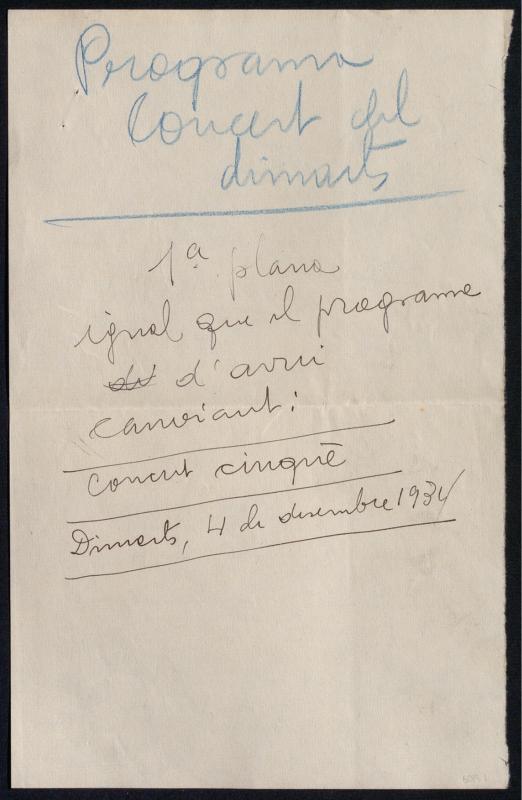 Programa
Concert del
dimarts
1ª plana
igual que el programa
d'avui
canviant:
Concert cinquè
Dimarts, 4 de desembre 1934